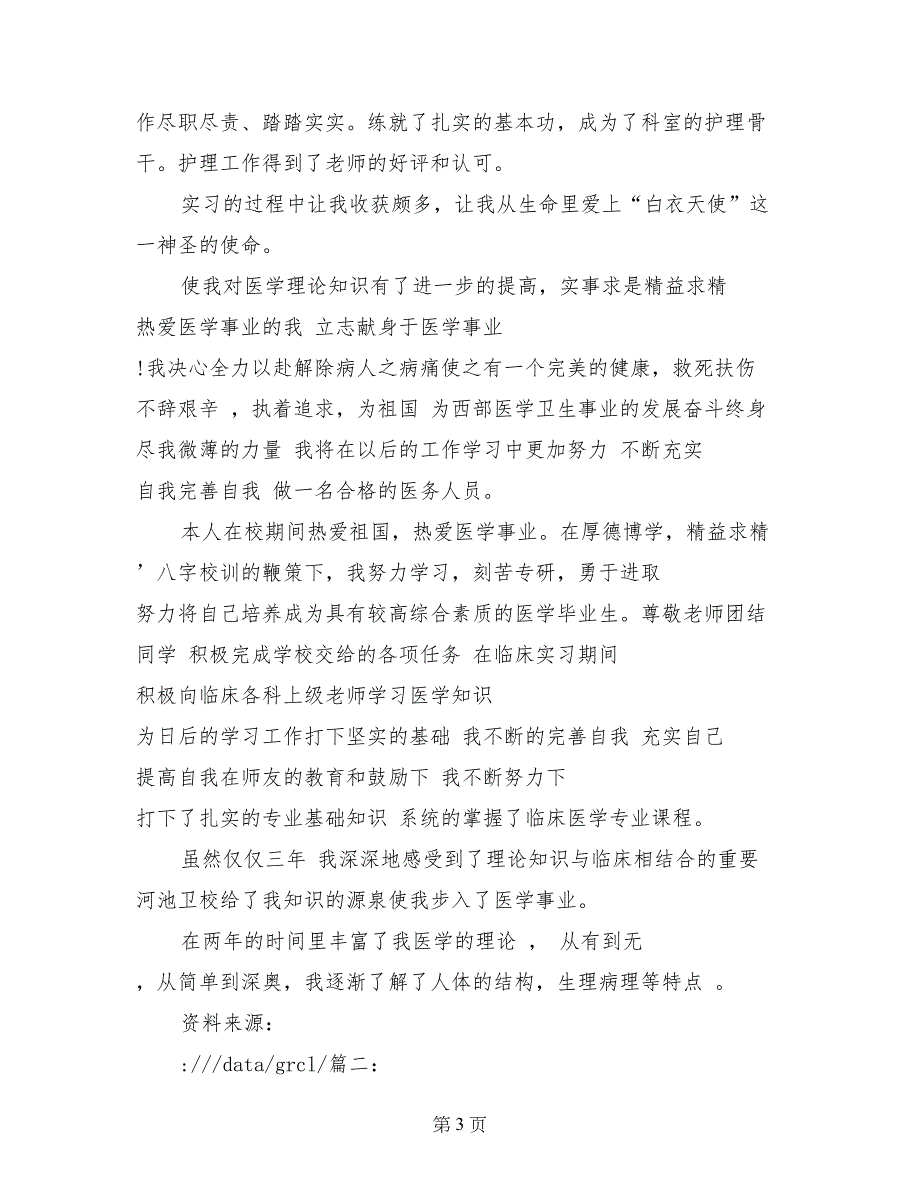 作尽职尽责、踏踏实实。练就了扎实的基本功，成为了科室的护理骨
干。护理工作得到了老师的好评和认可。
实习的过程中让我收获颇多，让我从生命里爱上“白衣天使”这
一神圣的使命。
使我对医学理论知识有了进一步的提高，实事求是精益求精
热爱医学事业的我 立志献身于医学事业
!我决心全力以赴解除病人之病痛使之有一个完美的健康，救死扶伤
不辞艰辛 ，执着追求，为祖国 为西部医学卫生事业的发展奋斗终身
尽我微薄的力量 我将在以后的工作学习中更加努力 不断充实
自我完善自我 做一名合格的医务人员。
本人在校期间热爱祖国，热爱医学事业。在厚德博学，精益求精
’八字校训的鞭策下，我努力学习，刻苦专研，勇于进取
努力将自己培养成为具有较高综合素质的医学毕业生。尊敬老师团结
同学 积极完成学校交给的各项任务 在临床实习期间
积极向临床各科上级老师学习医学知识
为日后的学习工作打下坚实的基础 我不断的完善自我 充实自己
提高自我在师友的教育和鼓励下 我不断努力下
打下了扎实的专业基础知识 系统的掌握了临床医学专业课程。
虽然仅仅三年 我深深地感受到了理论知识与临床相结合的重要
河池卫校给了我知识的源泉使我步入了医学事业。
在两年的时间里丰富了我医学的理论 ， 从有到无
，从简单到深奥，我逐渐了解了人体的结构，生理病理等特点 。
资料来源：
:///data/grcl/篇二：
第 3 页